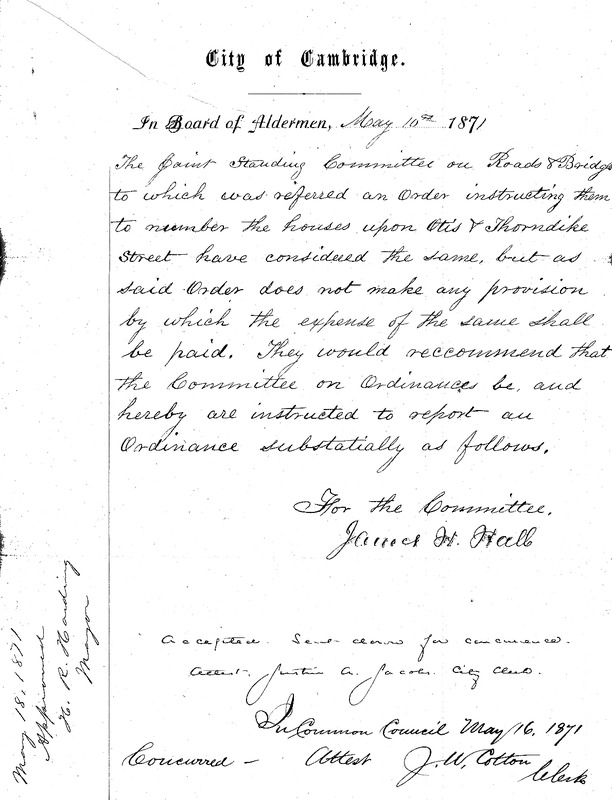 City of Cambridge.
In Board of Aldermen, May 10th 1871
The Joint Standing Committee on Roads & Bridges
to which was referred an Order instructing them
to number the houses upon Otis & Thorndike
Street have considered the same, but as
said Order does not make any provision
by which the expense of the same shall
be paid. They would reccommend that
the Committee on Ordinances be, and
hereby are instructed to report an
Ordinance substatially as follows.
For the Committee.
James H. Hall
Accepted. Sent down for concurrence.
Attest. Justin A. Jacobs. City Clerk.
In Common Council May 16, 1871
Concurred – Attest J. W. Cotton
Clerk
May 18, 1871
Approved
H. R. Harding
Mayor